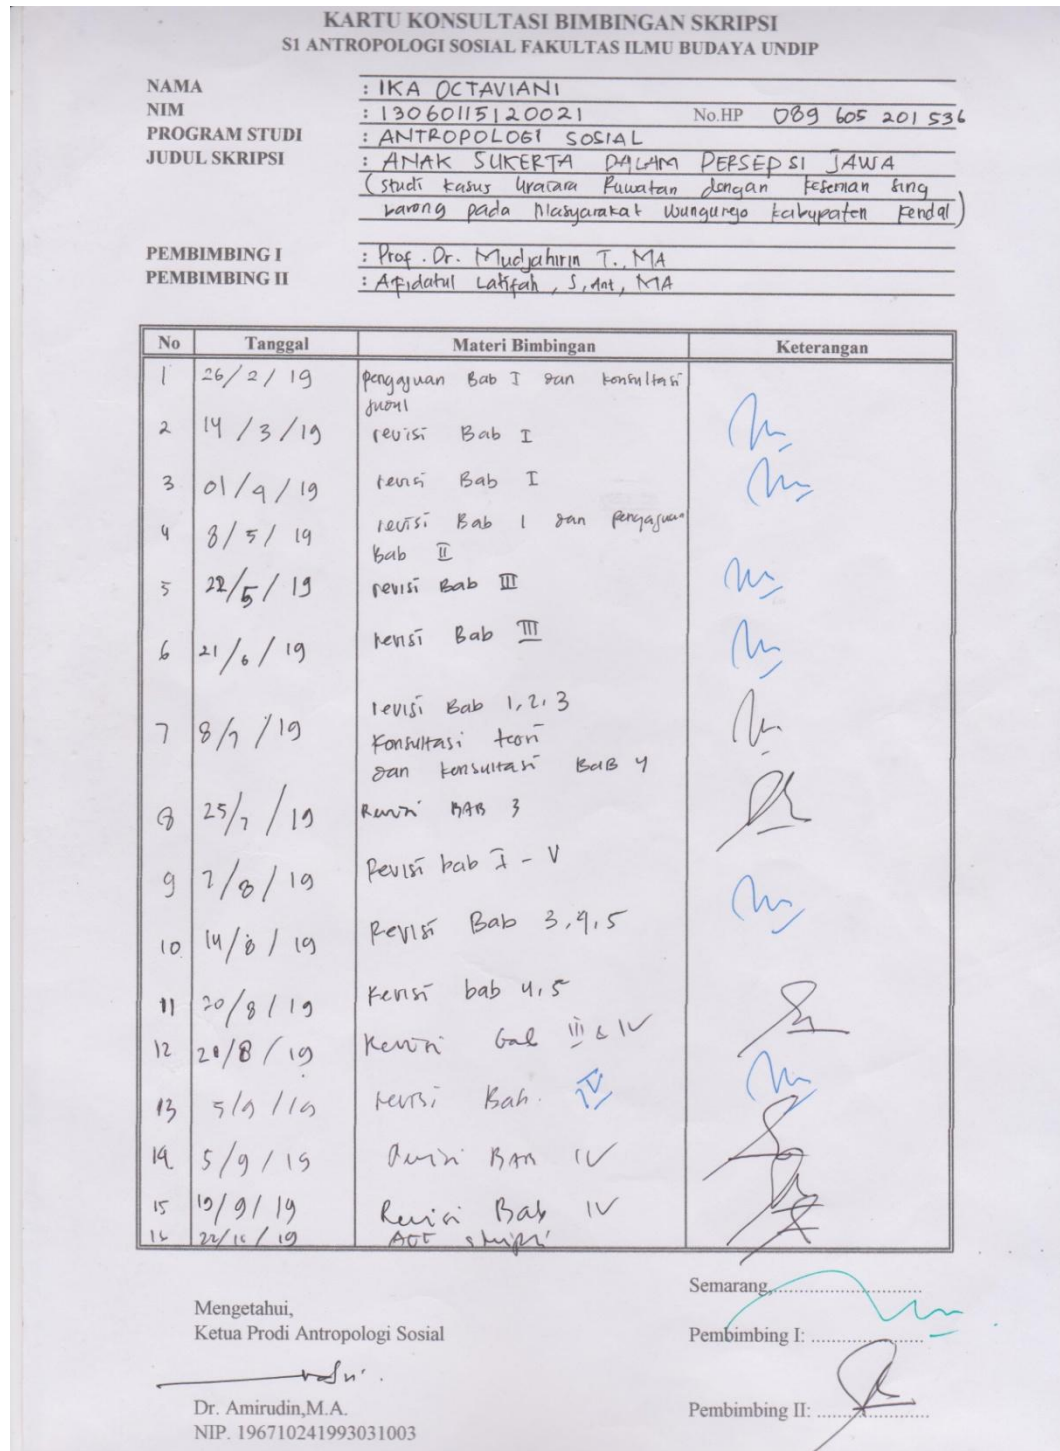 KARTU KONSULTASI BIMBINGAN SKRIPSI
S1 ANTROPOLOGI SOSIAL FAKULTAS ILMU BUDAYA UNDIP
NAMA : IKA OCTAVIANI
NIM : 13060115120021 No.HP 089 605 201 536
PROGRAM STUDI : ANTROPOLOGI SOSIAL
JUDUL SKRIPSI : ANAK SUKERTA DALAM PERSEPSI JAWA
(studi kasus Upacara Ruwatan dengan kesenian sing
barong pada Masyarakat Wungurejo kabupaten Kendal)
PEMBIMBING I : Prof. Dr. Mudjahirin T., MA
PEMBIMBING II : Afidatul Latifah, S,Ant, MA
No Tanggal Materi Bimbingan Keterangan
1 26/2/19 pengajuan Bab I dan konsultasi
judul
2 14/3/19 revisi Bab I
3 01/4/19 revisi Bab I
4 8/5/19 revisi Bab 1 dan pengajuan
Bab II
5 22/5/19 revisi Bab III
6 21/6/19 revisi Bab III
7 8/7/19 revisi Bab 1,2,3
konsultasi teori
dan konsultasi BAB 4
8 25/7/19 Revisi BAB 3
9 7/8/19 Revisi bab I - V
10 14/8/19 Revisi Bab 3,4,5
11 20/8/19 Revisi bab 4,5
12 /8/19 Revisi Bab III & IV
13 5/9/19 revisi Bab. IV
14 5/9/19 Revisi BAB IV
15 19/9/19 Revisi Bab IV
16 /19 ACC skripsi
Semarang,
Mengetahui,
Ketua Prodi Antropologi Sosial
Pembimbing I:
Dr. Amirudin,M.A.
Pembimbing II:
NIP. 196710241993031003